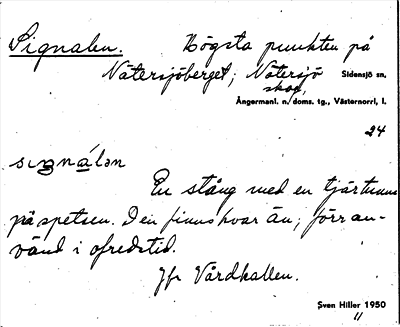 Signalen. Högsta punkten på
Nätersjöberget; Nätersjö Sidensjö sn,
skog,
Ångermanl. n. doms. tg., Västernorrl. l.
24
sıgnálən
En stång med en tjärtunna
på spetsen. Den finns kvar än; förr an-
vänd i ofredstid.
Jfr Vårdkallen.
Sven Hiller 1950
11